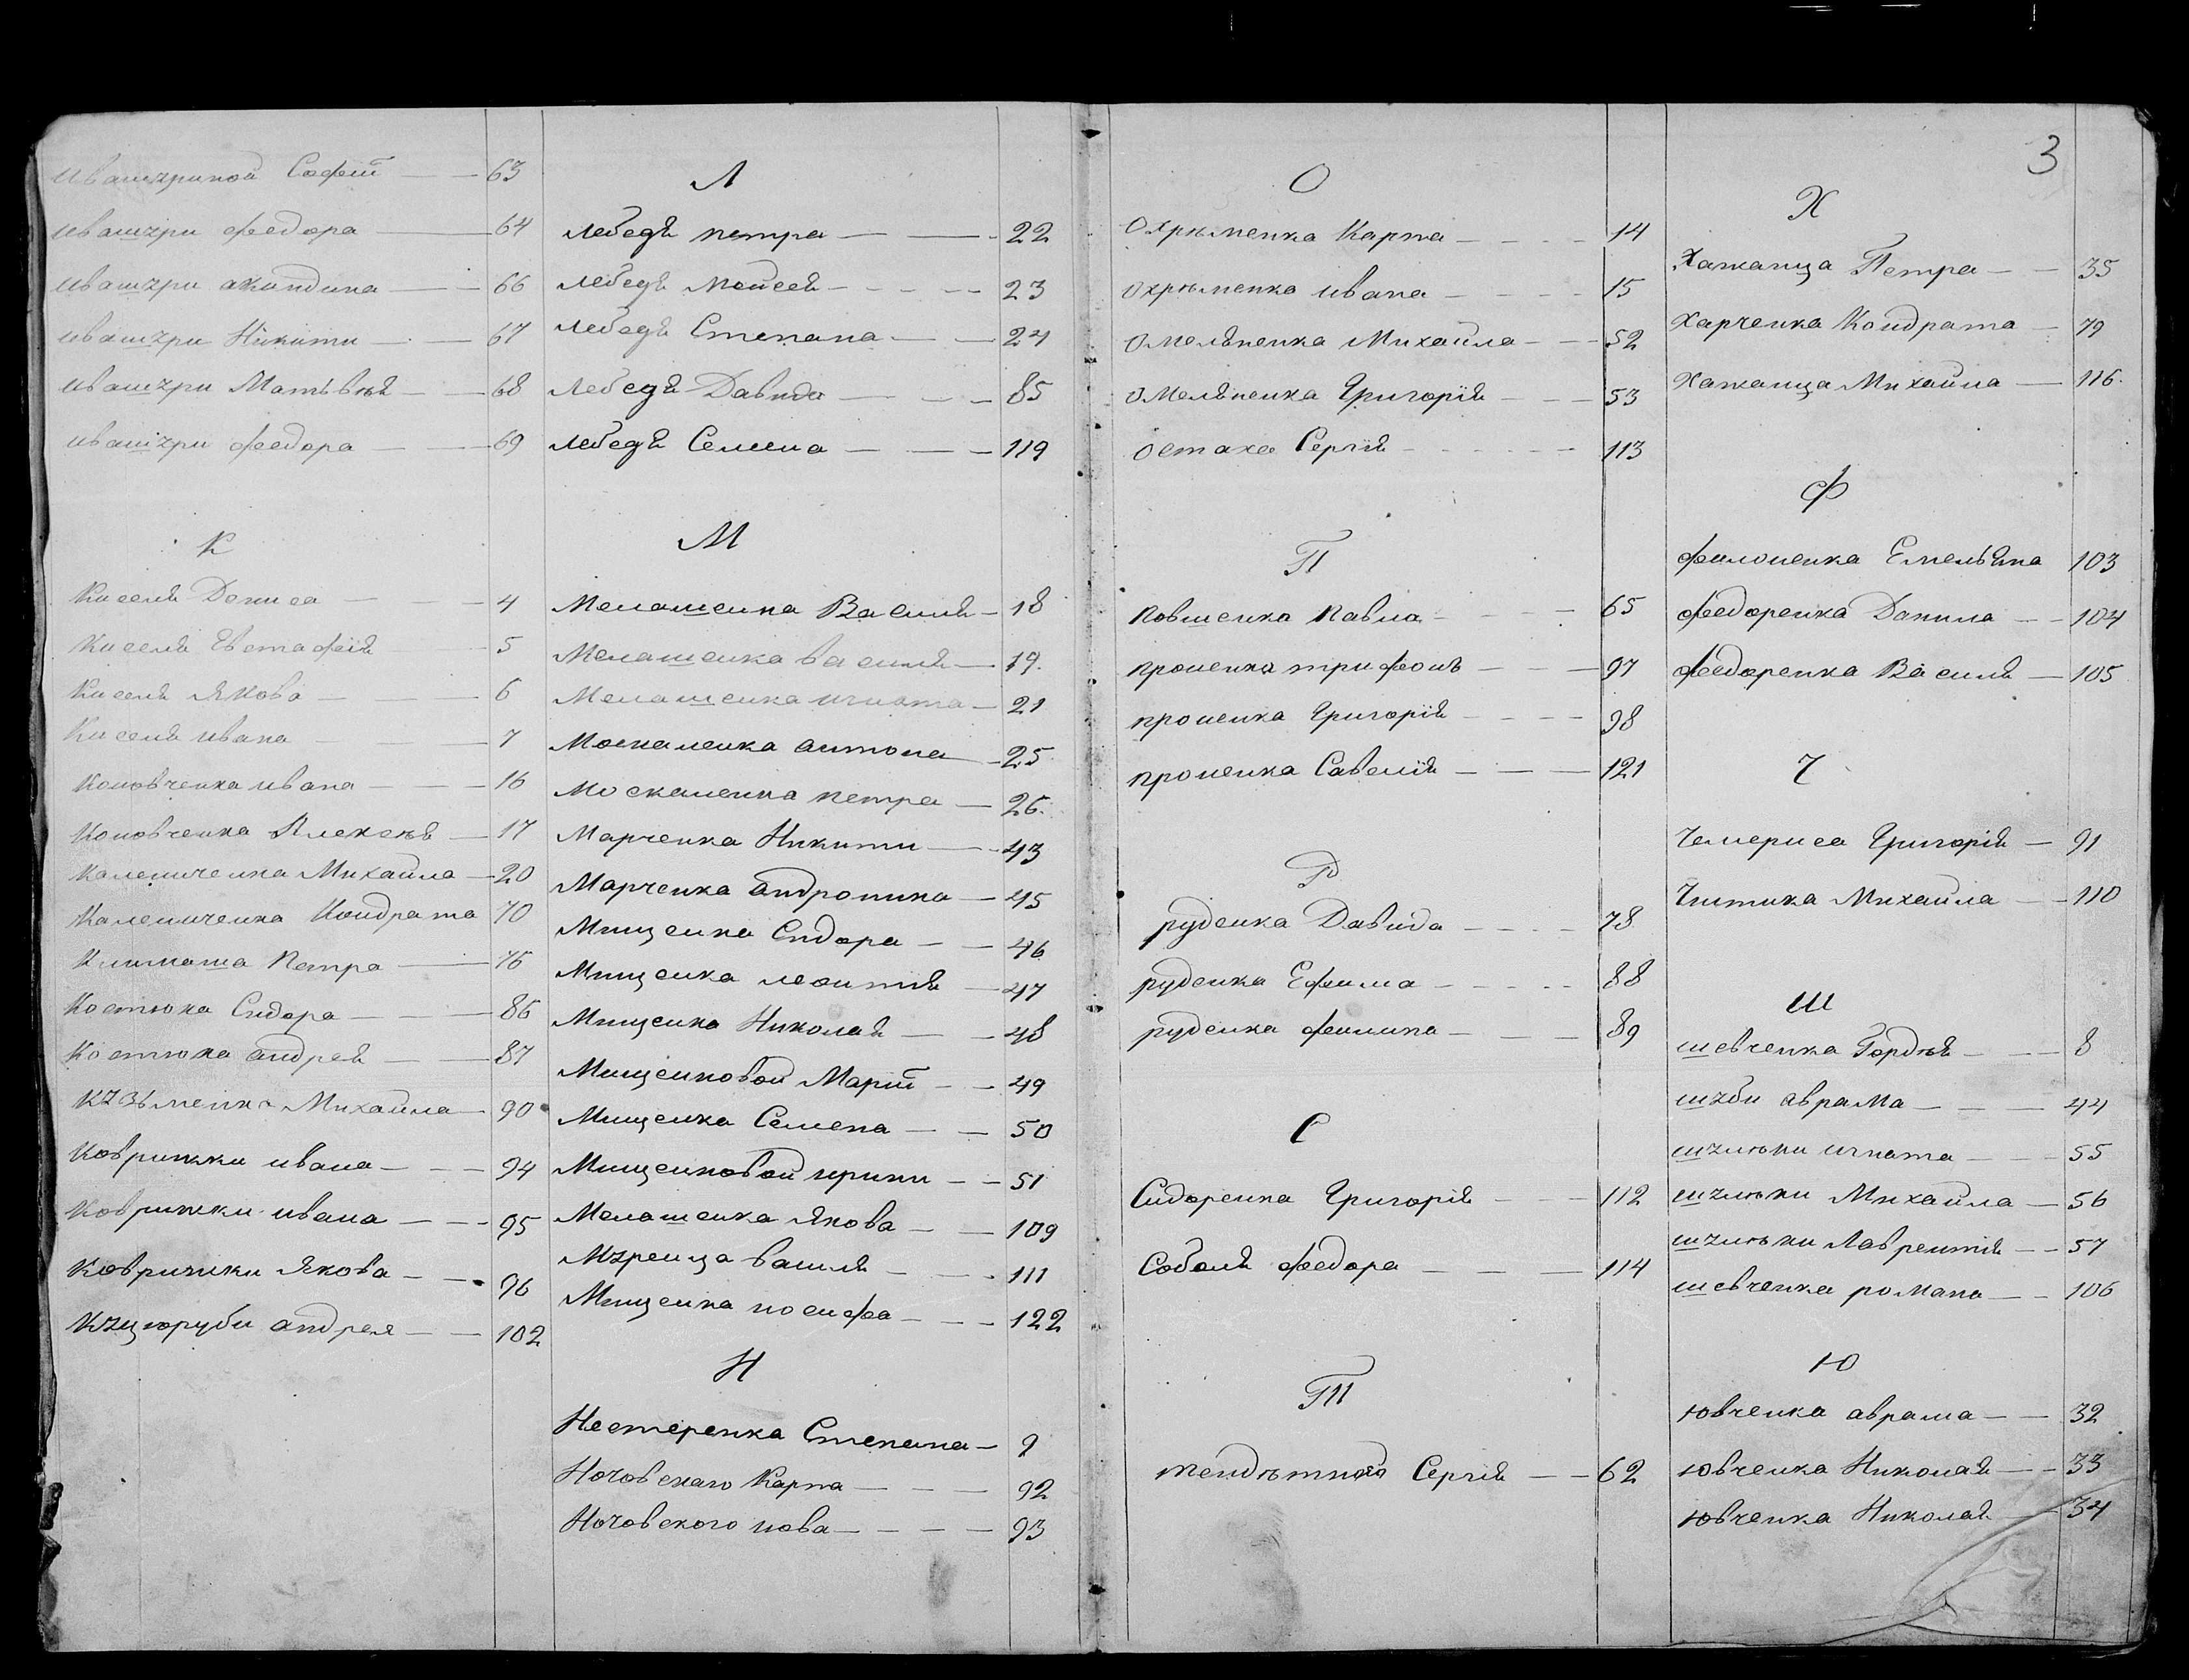 3
Ивашуриной Софіи — 63
Ивашури Федора — 64
Ивашури Акиндина — 66
Ивашури Никити — 67
Ивашури Матьвѣя — 68
Ивашури Федора — 69
К
Киселя Дениса — 4
Киселя Евстафія — 5
Киселя Якова — 6
Киселя Ивана — 7
Коновченка Ивана — 16
Коновченка Алексѣя — 17
Калениченка Михайла — 20
Калениченка Кондрата 70
Климаша Петра — 75
Костюка Сидора — 86
Костюка Андрея — 87
Кузьменка Михайла — 90
Коврижки Ивана — 94
Коврижки Ивана — 95
Коврижки Якова — 96
Куцюруби Андрея — 102
Л
Лебедя Петра — 22
Лебедя Моисея — 23
Лебедя Степана — 24
Лебедя Давида — 85
Лебедя Семена — 119
М
Мелашенка Василя — 18
Мелашенка Василя — 19.
Мелашенка Игната — 21
Москаленка Антона — 25
Москаленка Петра — 26.
Марченка Никити — 43
Марченка Андроника — 45
Мищенка Сидора — 46
Мищенка Леонтія — 47
Мищенка Николая — 48
Мищенковой Маріи — 49
Мищенка Семена — 50
Мищенковой Ирини — 51
Мелашенка Якова — 109
Муренца Василя — 111
Мищенка Иосифа — 122
Н
Нестеренка Степана — 9
Ночовскаго Карпа — 92
Ночовского Иова — 93
О
Охрѣменка Карпа — 14
Охрѣменка Ивана — 15
Омеляненка Михайла — 52
Омеляненка Григорія — 53
Остаха Сергія — 113
П
Повшенка Павла — 65
Проненка Трифонъ — 97
Проненка Григорія — 98
Проненка Савелія — 121
Р
Руденка Давида — 78
Руденка Ефима — 88
Руденка Филипа — 89
С
Сидоренка Григорія — 112
Соболя Федора — 114
Т
Сергія — 62
Х
Хажанца Петра — 35
Харченка Кондрата — 79
Хажанца Михайла — 116.
Ф
Филоненка Емельяна 103
Федоренка Данила — 104
Федоренка Василя — 105
Ч
Чемериса Григорія — 91
Чистика Михайла — 110
Ш
Шевченка Гордѣя — 8
Шуби Аврама — 44
Шулѣки Игната — 55
Шулѣки Михайла — 56
Шулѣки Лаврентія — 57
Шевченка Романа — 106
Ю
Ювченка Аврама — 32
Ювченка Николая — 33
Ювченка Николая — 34